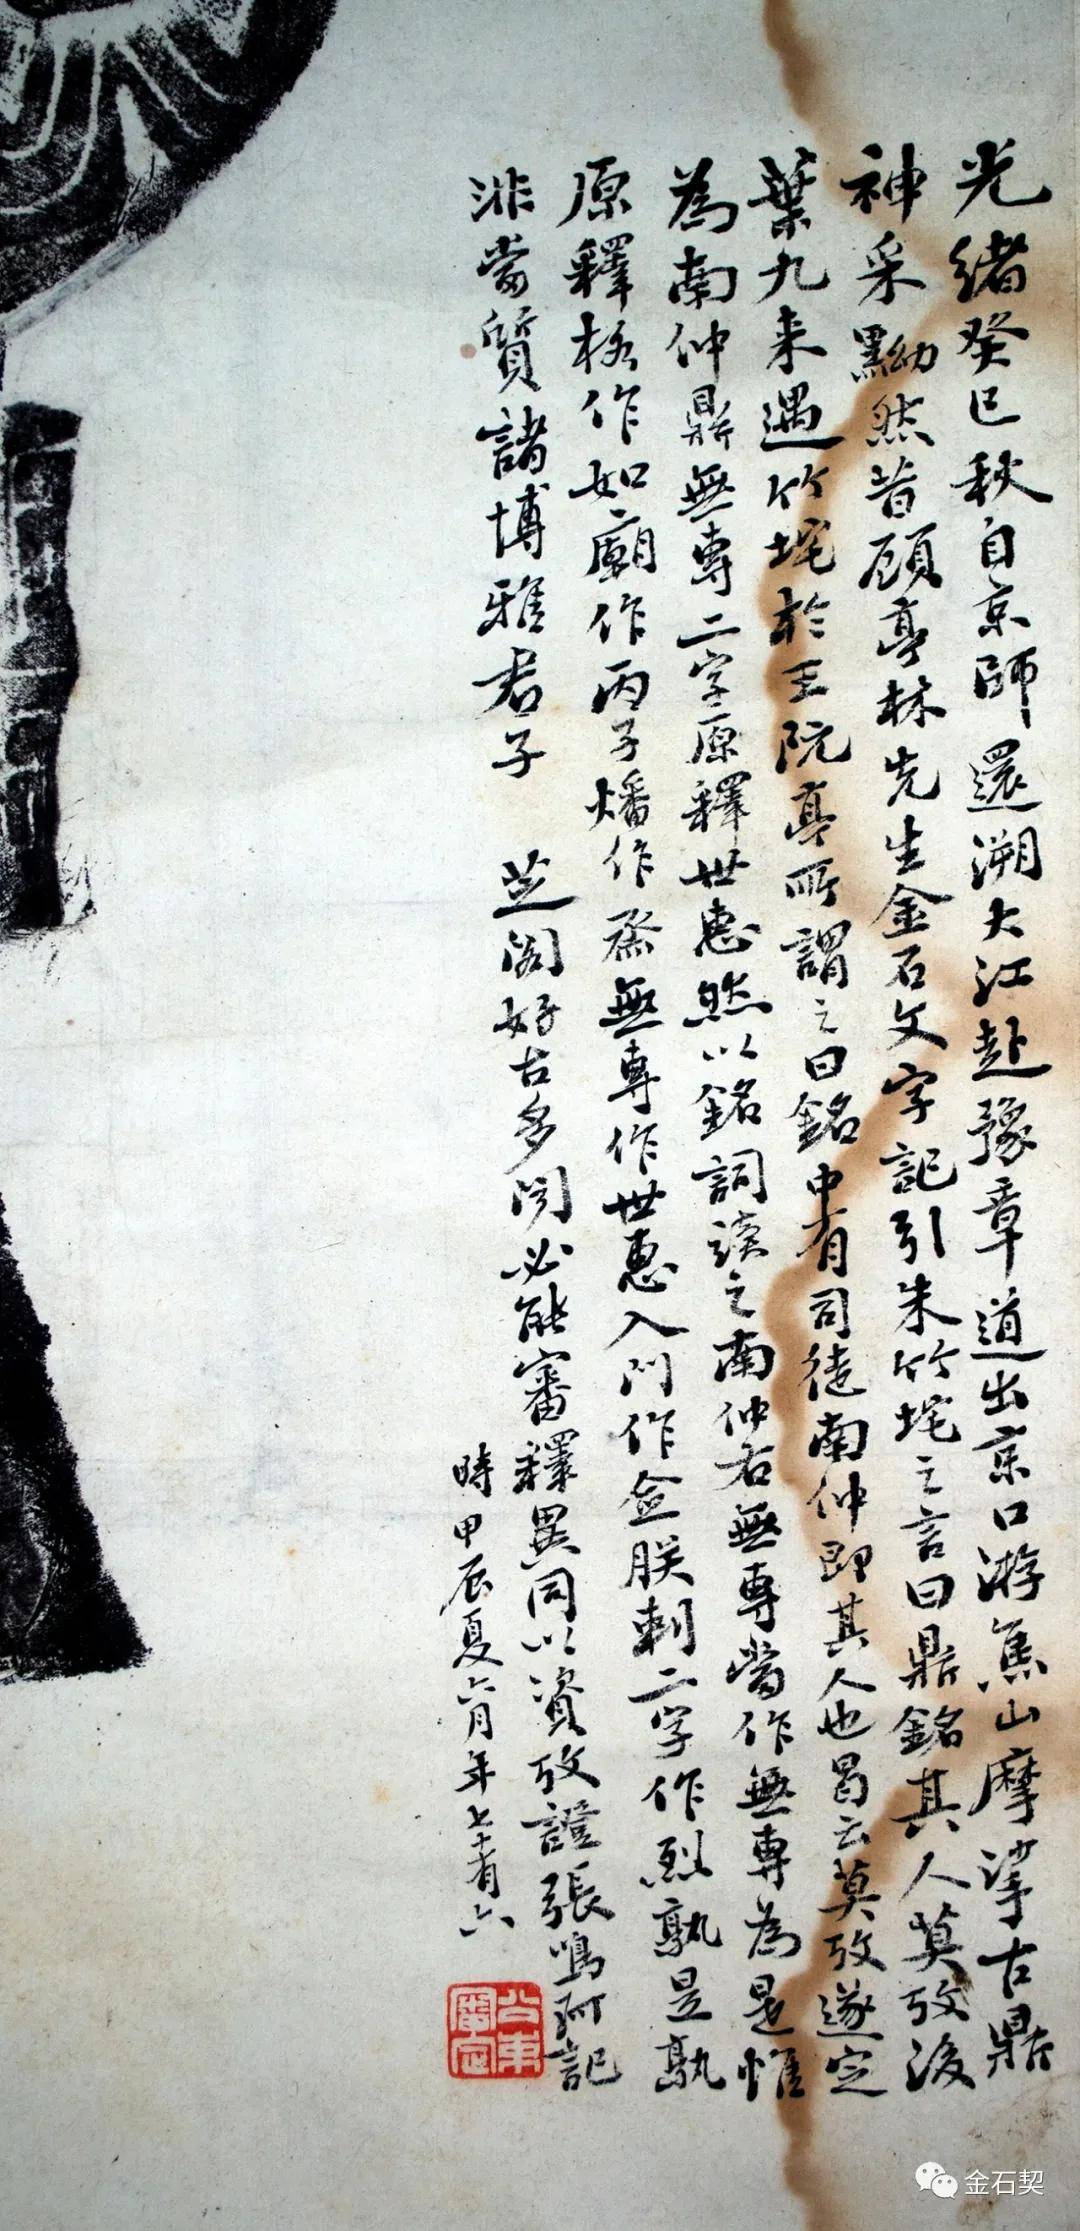 光緒癸巳秋自京師還溯大江赴豫章道出京口游焦山摩挲古鼎
神采黝然昔顧亭林先生金石文字記引朱竹垞之言曰鼎銘其人莫攷後
葉九来遇竹垞於王阮亭所謂之曰銘中有司徒南仲即其人也曷云莫攷遂定
為南仲鼎無專二字原釋世惠然以銘詞讀之南仲右無專當作無專為是惟
原釋格作如廟作丙子燔作烝無專作世惠入門作立朕刺二字作烈孰是孰
非當質諸博雅君子 芝閣好古多聞必能審釋異同以資攷證張鳴珂記
時甲辰夏六月年七十有六
公束
審定
金石契